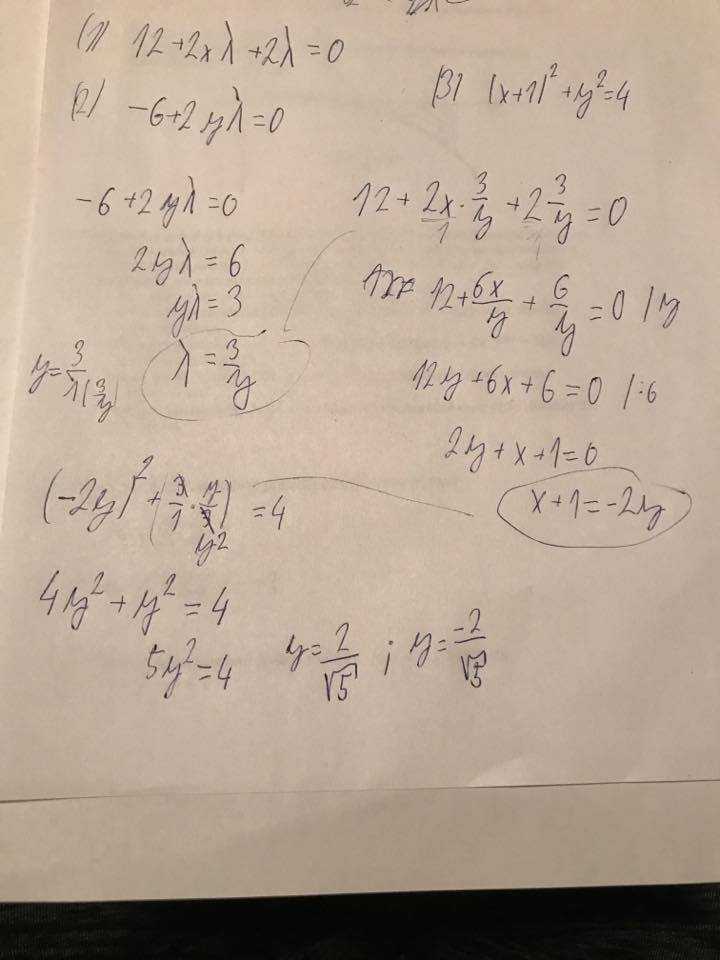 (1) 12 + 2xλ + 2λ = 0
(2) -6 + 2yλ = 0
(3) (x+1)² + y² = 4
-6 + 2yλ = 0
2yλ = 6
yλ = 3
λ = 3/y
y = 3/λ (3/y)
12 + 2x/1 · 3/y + 2 3/y = 0
12 + 6x/y + 6/y = 0 / y
12y + 6x + 6 = 0 / :6
2y + x + 1 = 0
x + 1 = -2y
(-2y)² + (3/1 · y/3) = 4
y²
4y² + y² = 4
5y² = 4
y = 2/√5 ; y = -2/√5